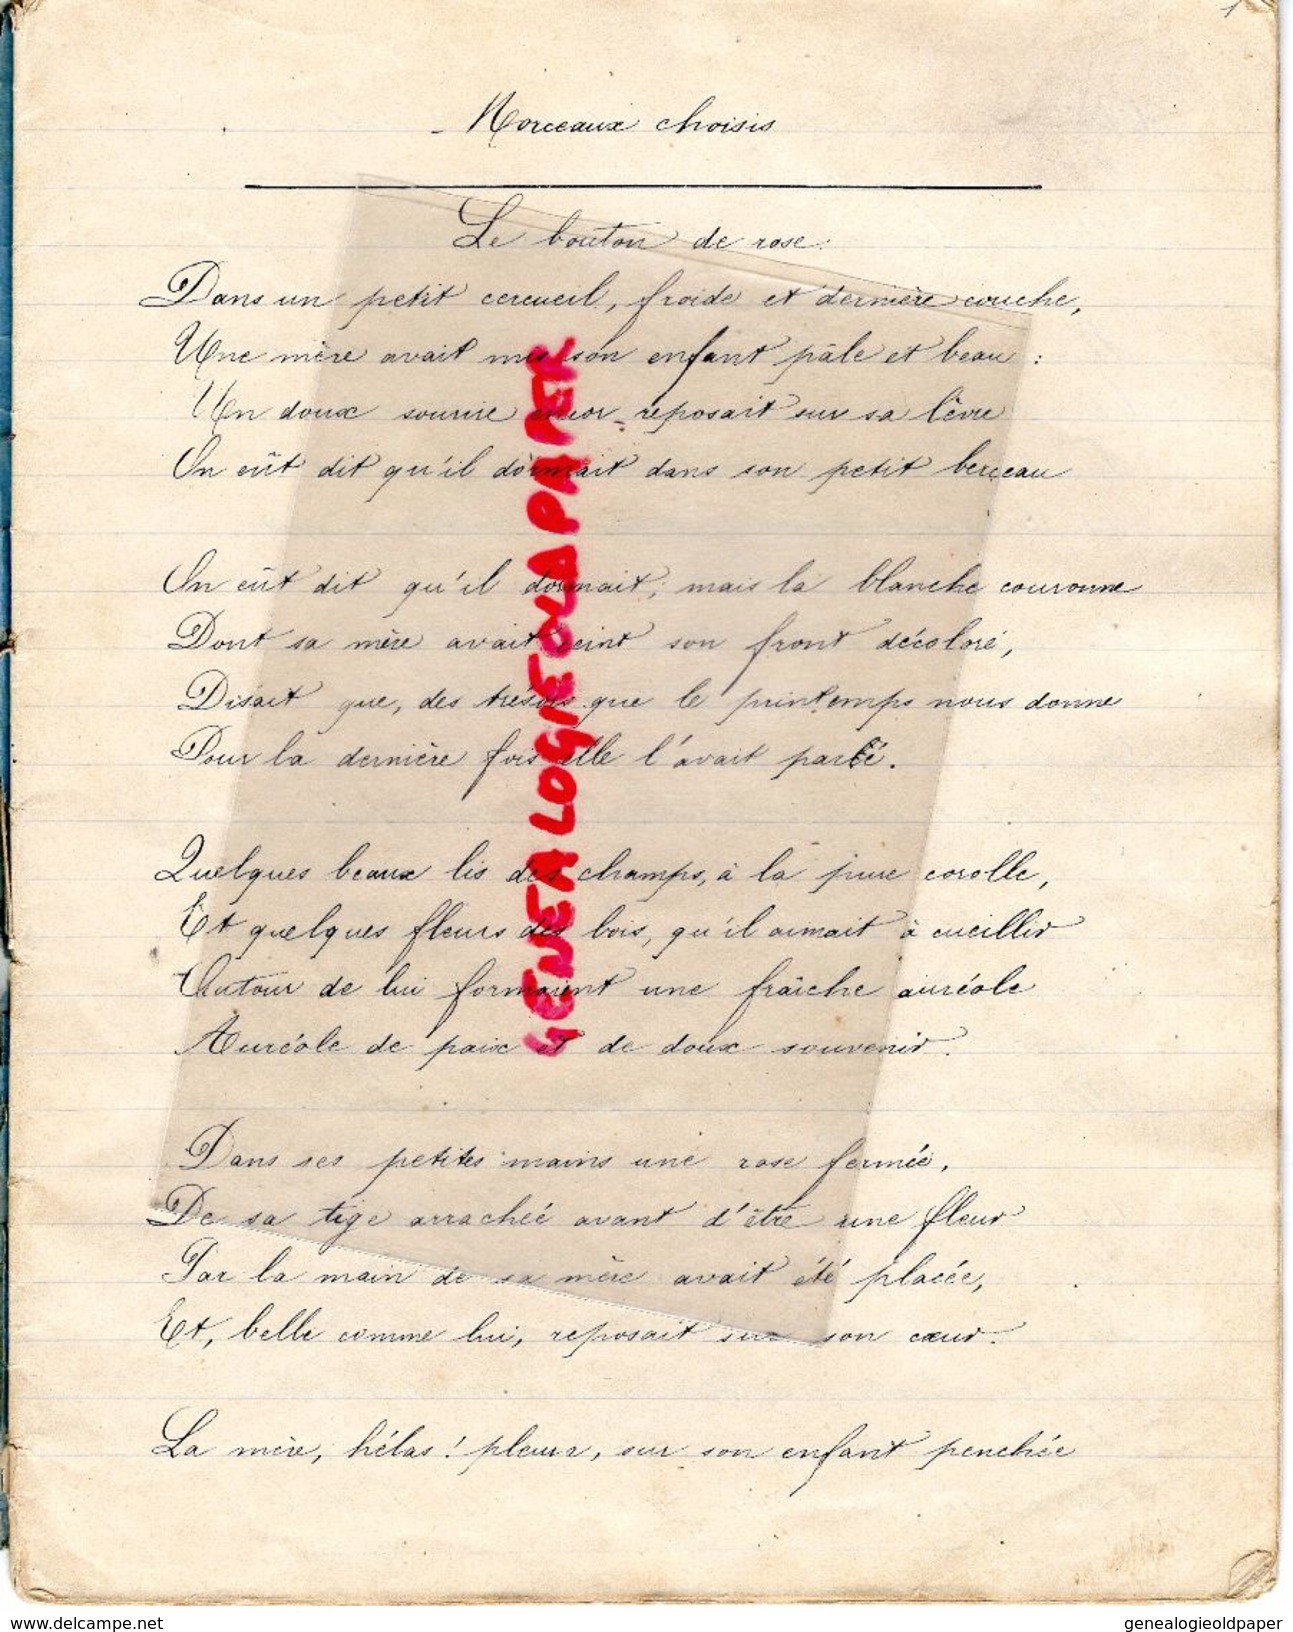 1
- Morceaux choisis
Le bouton de rose:
Dans un petit cercueil, froide et dernière couche,
Une mère avait mis son enfant pâle et beau :
Un doux sourire encor reposait sur sa lèvre
On eût dit qu'il dormait dans son petit berceau
On eût dit qu'il dormait; mais la blanche couronne
Dont sa mère avait ceint son front décoloré,
Disait que, des trésors que le printemps nous donne
Pour la dernière fois elle l'avait paré.
Quelques beaux lis des champs, à la pure corolle,
Et quelques fleurs des bois, qu'il aimait à cueillir
Autour de lui formaient une fraîche auréole
Auréole de paix et de doux souvenir.
Dans ses petites mains une rose fermée,
De sa tige arrachée avant d'être une fleur
Par la main de sa mère avait été placée,
Et, belle comme lui, reposait sur son cœur.
La mère, hélas! pleura, sur son enfant penchée
GENEALOGIEOLDPAPER
www.delcampe.net
genealogieoldpaper